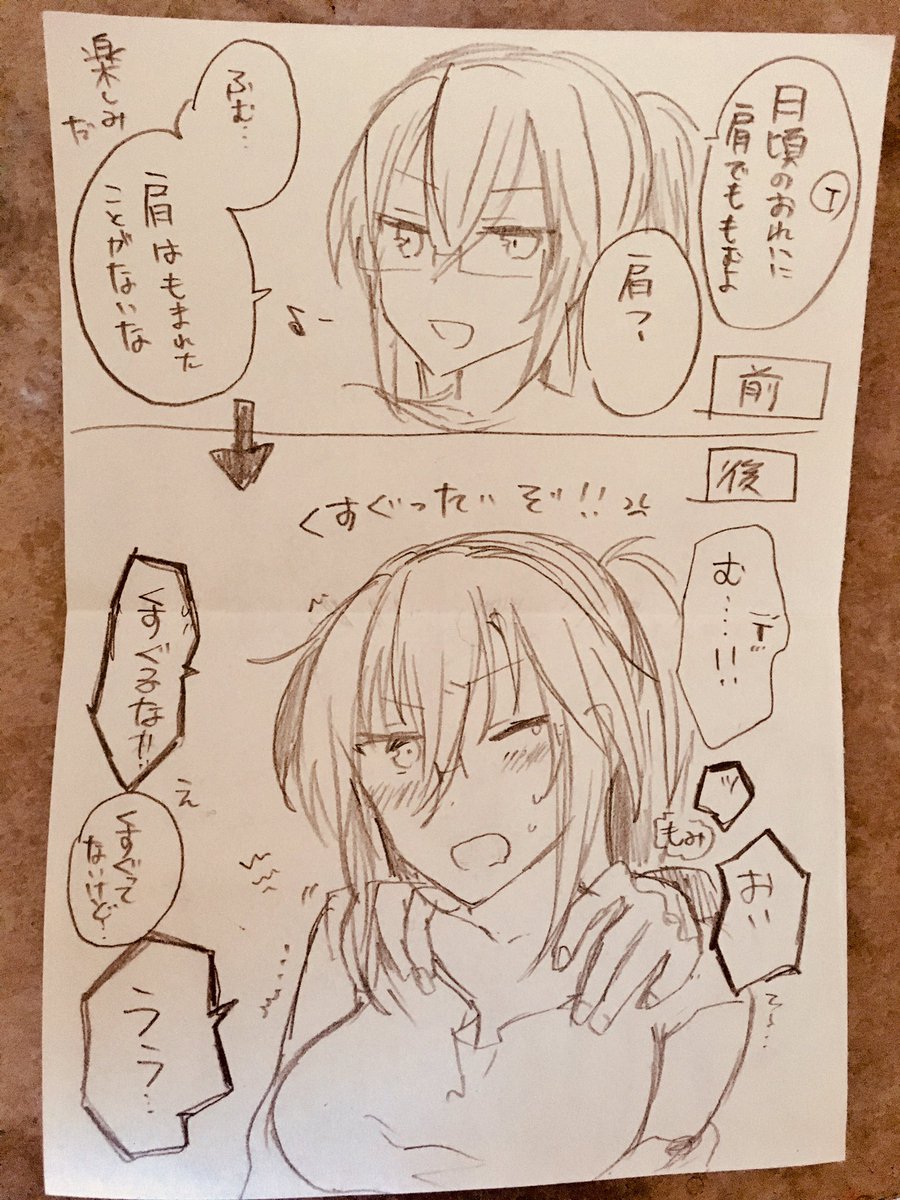 日頃のおれいに
肩でももむよ
T
肩?
ふむ…
肩はもまれた
ことがないな
楽しみ
だ
前
後
くすぐったいぞ!!
む…!!
ッ
もみ
おい
くすぐるな!!
え
くすぐって
ないけど…
うう…